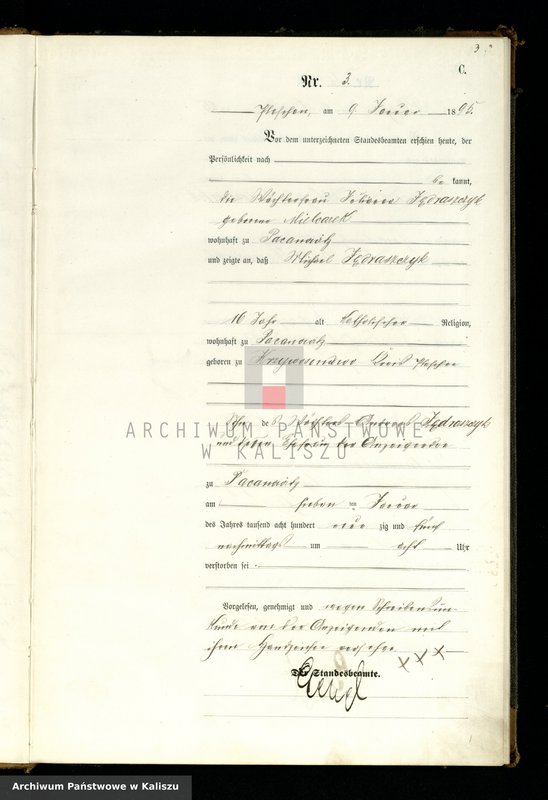 3
C.
Nr. 3.
Pleschen, am 9. Januar 1895.
Vor dem unterzeichneten Standesbeamten erschien heute, der
Persönlichkeit nach
be kannt,
die Wächterfrau Jędraszczyk
geborene Mielcarek
wohnhaft zu Pacanowitz
und zeigte an, daß Michael Jędraszczyk
16 Jahr alt katholischer Religion,
wohnhaft zu Pacanowitz
geboren zu Krzywosondowo Kreis Pleschen
Sohn des Wächters Jędraszczyk
und dessen Ehefrau der Anzeigenden
zu Pacanowitz
am sieben ten Januar
des Jahres tausend acht hundert neun zig und fünf
nachmittags um acht Uhr
verstorben sei.
Vorgelesen, genehmigt und wegen Schreibensun-
kunde von der Anzeigenden mit
ihrem Handzeichen versehen
xxx
Der Standesbeamte.
ARCHIWUM PAŃSTWOWE
W KALISZU
Archiwum Państwowe w Kaliszu